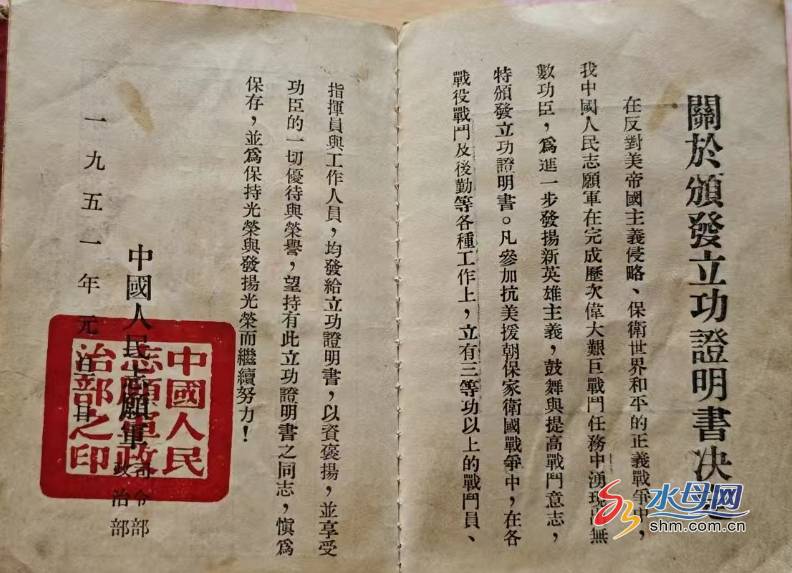 關於頒發立功證明書決定
在反對美帝國主義侵略、保衛世界和平的正義戰爭中,
我中國人民志願軍在完成歷次偉大艱巨戰鬥任務中湧現
無
數功臣,爲進一步發揚新英雄主義,鼓舞與提高戰鬥意志,
特頒發立功證明書。凡參加抗美援朝保家衛國戰爭中,在各
戰役戰鬥及後勤等各種工作上,立有三等功以上的戰鬥員、
指揮員與工作人員,均發給立功證明書,以資褒揚,並享受
功臣的一切優待與榮譽,望持有此立功證明書之同志,慎爲
保存,並爲保持光榮與發揚光榮而繼續努力!
中國人民志願軍
司令部
政治部
一九五一年元
中國人民
志願軍政
治部之印
水母网
shm.com.cn